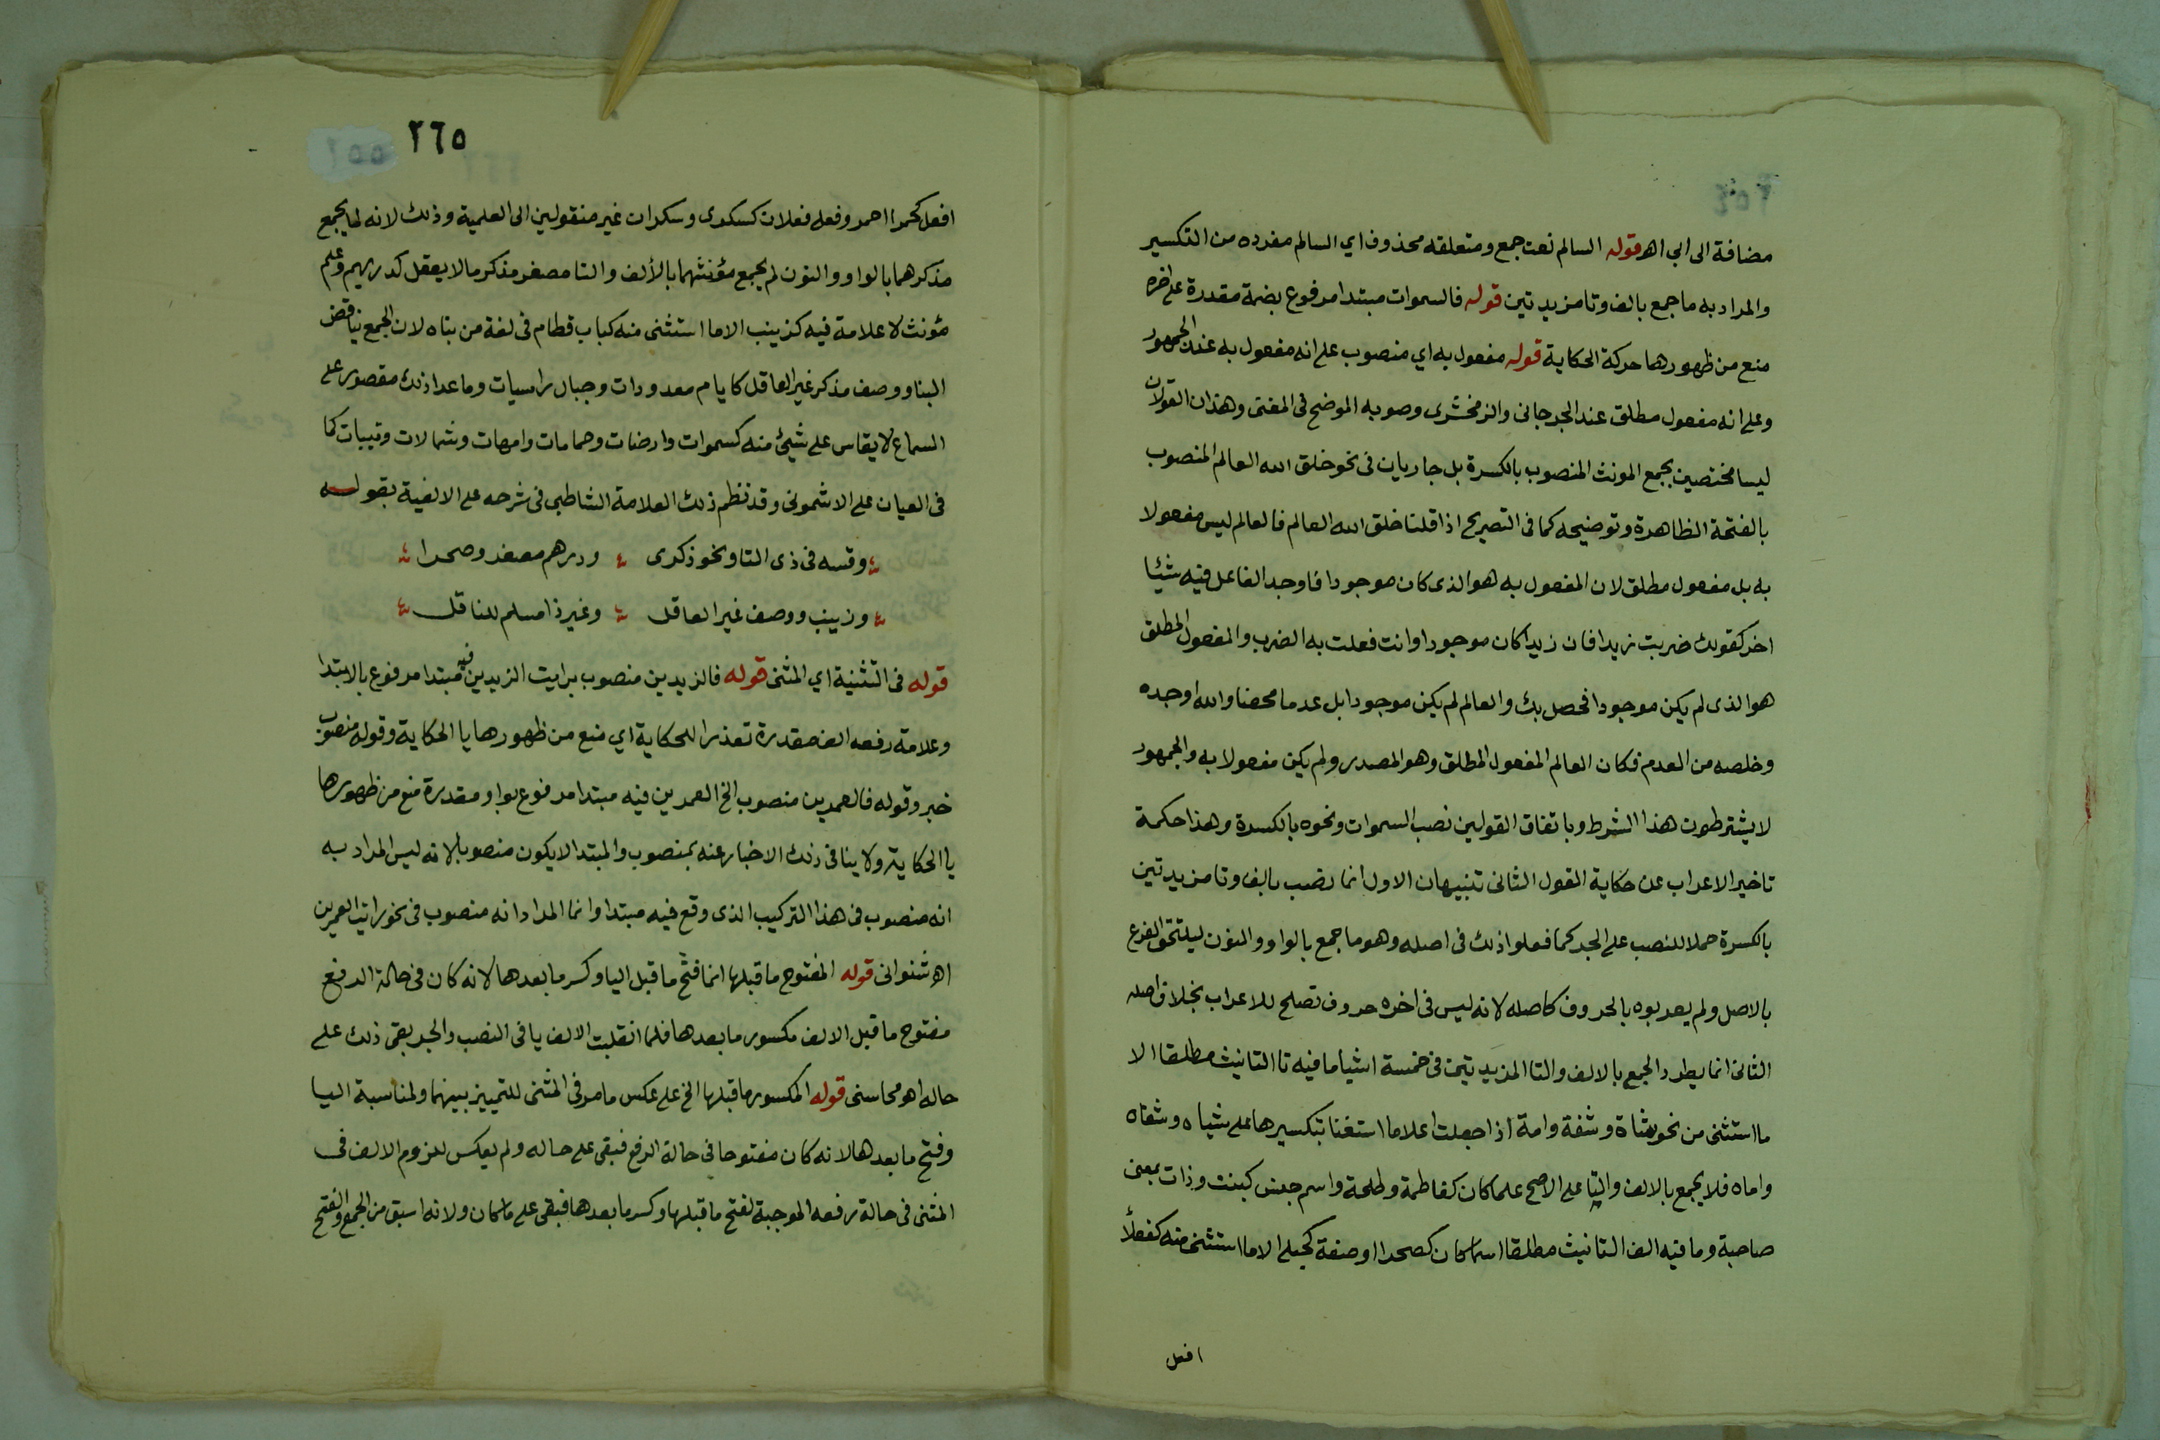 مضافة الى ابي اه قوله السالم نعت جمع ومتعلقه محذوف اي السالم مفرده من التكسير
والمراد به ما جمع بالف وتا مزيدتين قوله فالسموات مبتدا مرفوع بضمة مقدرة على اخره
منع من ظهورها حركة الحكاية قوله مفعول به اي منصوب على انه مفعول به عند الجمهور
وعلى انه مفعول مطلق عند الجرجانى والزمخشرى وصوبه الموضح فى المغنى وهذان القولان
ليسا مختصين بجمع المونث المنصوب بالكسرة بل جاريان فى نحو خلق الله العالم المنصوب
بالفتحة الظاهرة وتوضيحه كما فى التصريح اذا قلنا خلق الله العالم فالعالم ليس مفعولا
به بل مفعول مطلق لان المفعول به هو الذى كان موجودا فاوجد الفاعل فيه شيئا
اخر كقولك ضربت زيدا فان زيدا كان موجودا وانت فعلت به الضرب والمفعول المطلق
هو الذى لم يكن موجودا فحصل بك والعالم لم يكن موجودا بل عدما محضا والله اوجده
وخلصه من العدم فكان العالم المفعول المطلق وهو المصدر ولم يكن مفعولا به والجمهور
لا يشترطون هذا الشرط وباتفاق القولين نصب السموات ونحوه بالكسرة وهذا حكمة
تاخير الاعراب عن حكاية القول الثانى تنبيهان الاول انما نصب بالف وتا مزيدتين
بالكسرة حملا للنصب على الجر كما فعلوا ذلك فى اصله وهو ما جمع بالواو والنون ليلتحق الفرع
بالاصل ولم يعربوه بالحروف كاصله لانه ليس فى اخره حروف تصلح للاعراب بخلاف اصله
الثانى انما يطرد الجمع بالالف والتا المزيدتين فى خمسة اشيا ما فيه تا التانيث مطلقا الا
ما استثنى من نحو شاة وشفة وامة اذا جعلت اعلاما استغنا بتكسيرها على شياه وشفاه
واماه فلا يجمع بالالف والتا على الاصح علما كان كفاطمة وطلحة واسم جنس كبنت وذات بمعنى
صاحبة وما فيه الف التانيث مطلقا اسما كان كصحرا او صفة كحبلى الا ما استثنى منه كفعلأ
افعل
٢٦٥
افعل كحمرا احمر وفعلى فعلان كسكرى وسكران غير منقولين الى العلمية وذلك لانه لما يجمع
مذكرهما بالواو والنون لم يجمع مؤنثهما بالألف والتا مصغر مذكر ما لا يعقل كدريهم وعلم
مؤنث لا علامة فيه كزينب الا ما استثنى منه كباب قطام فى لغة من بناه لان الجمع يناقض
البنا ووصف مذكر غير العاقل كايام معدودات وجبال راسيات وما عدا ذلك مقصور على
السماع لا يقاس على شيئ منه كسموات وارضات وحمامات وامهات وشمالات وثيبات كما
فى العيان على الاشمونى وقد نظم ذلك العلامة الشاطبى فى شرحه على الالفية بقوله
وقسه فى ذى التا ونحو ذكرى ودرهم مصغر وصحرا
وزينب ووصف غير العاقل وغير ذا مسلم للناقل
قوله فى التثنية اي المثنى قوله فالزيدين منصوب برايت الزيدين فيه مبتدا مرفوع بالابتدا
وعلامة رفعه الف مقدرة تعذرا للحكاية اي منع من ظهورها يا الحكاية وقوله منصوب
خبر وقوله فالعمرين منصوب الخ العمرين فيه مبتدا مرفوع بواو مقدرة منع من ظهورها
يا الحكاية ولا ينافى ذلك الاخبار عنه بمنصوب والمبتدا لا يكون منصوبا لانه ليس المراد به
انه منصوب فى هذا التركيب الذى وقع فيه مبتدا وانما المراد انه منصوب فى نحو رايت العمرين
اه شنوانى قوله المفتوح ما قبلها انما فتح ما قبل اليا وكسر ما بعدها لانه كان فى حالة الرفع
مفتوح ما قبل الالف مكسور ما بعدها فلما انقلبت الالف يا فى النصب والجر بقى ذلك على
حاله اه محاسنى قوله المكسور ما قبلها الخ على عكس ما مر فى المثنى للتمييز بينهما ولمناسبة اليا
وفتح ما بعدها لانه كان مفتوحا فى حالة الرفع فبقى على حاله ولم يعكس للزوم الالف فى
المثنى فى حالة رفعه الموجبة لفتح ما قبلها وكسر ما بعدها فبقى على ما كان ولانه اسبق من الجمع والفتح